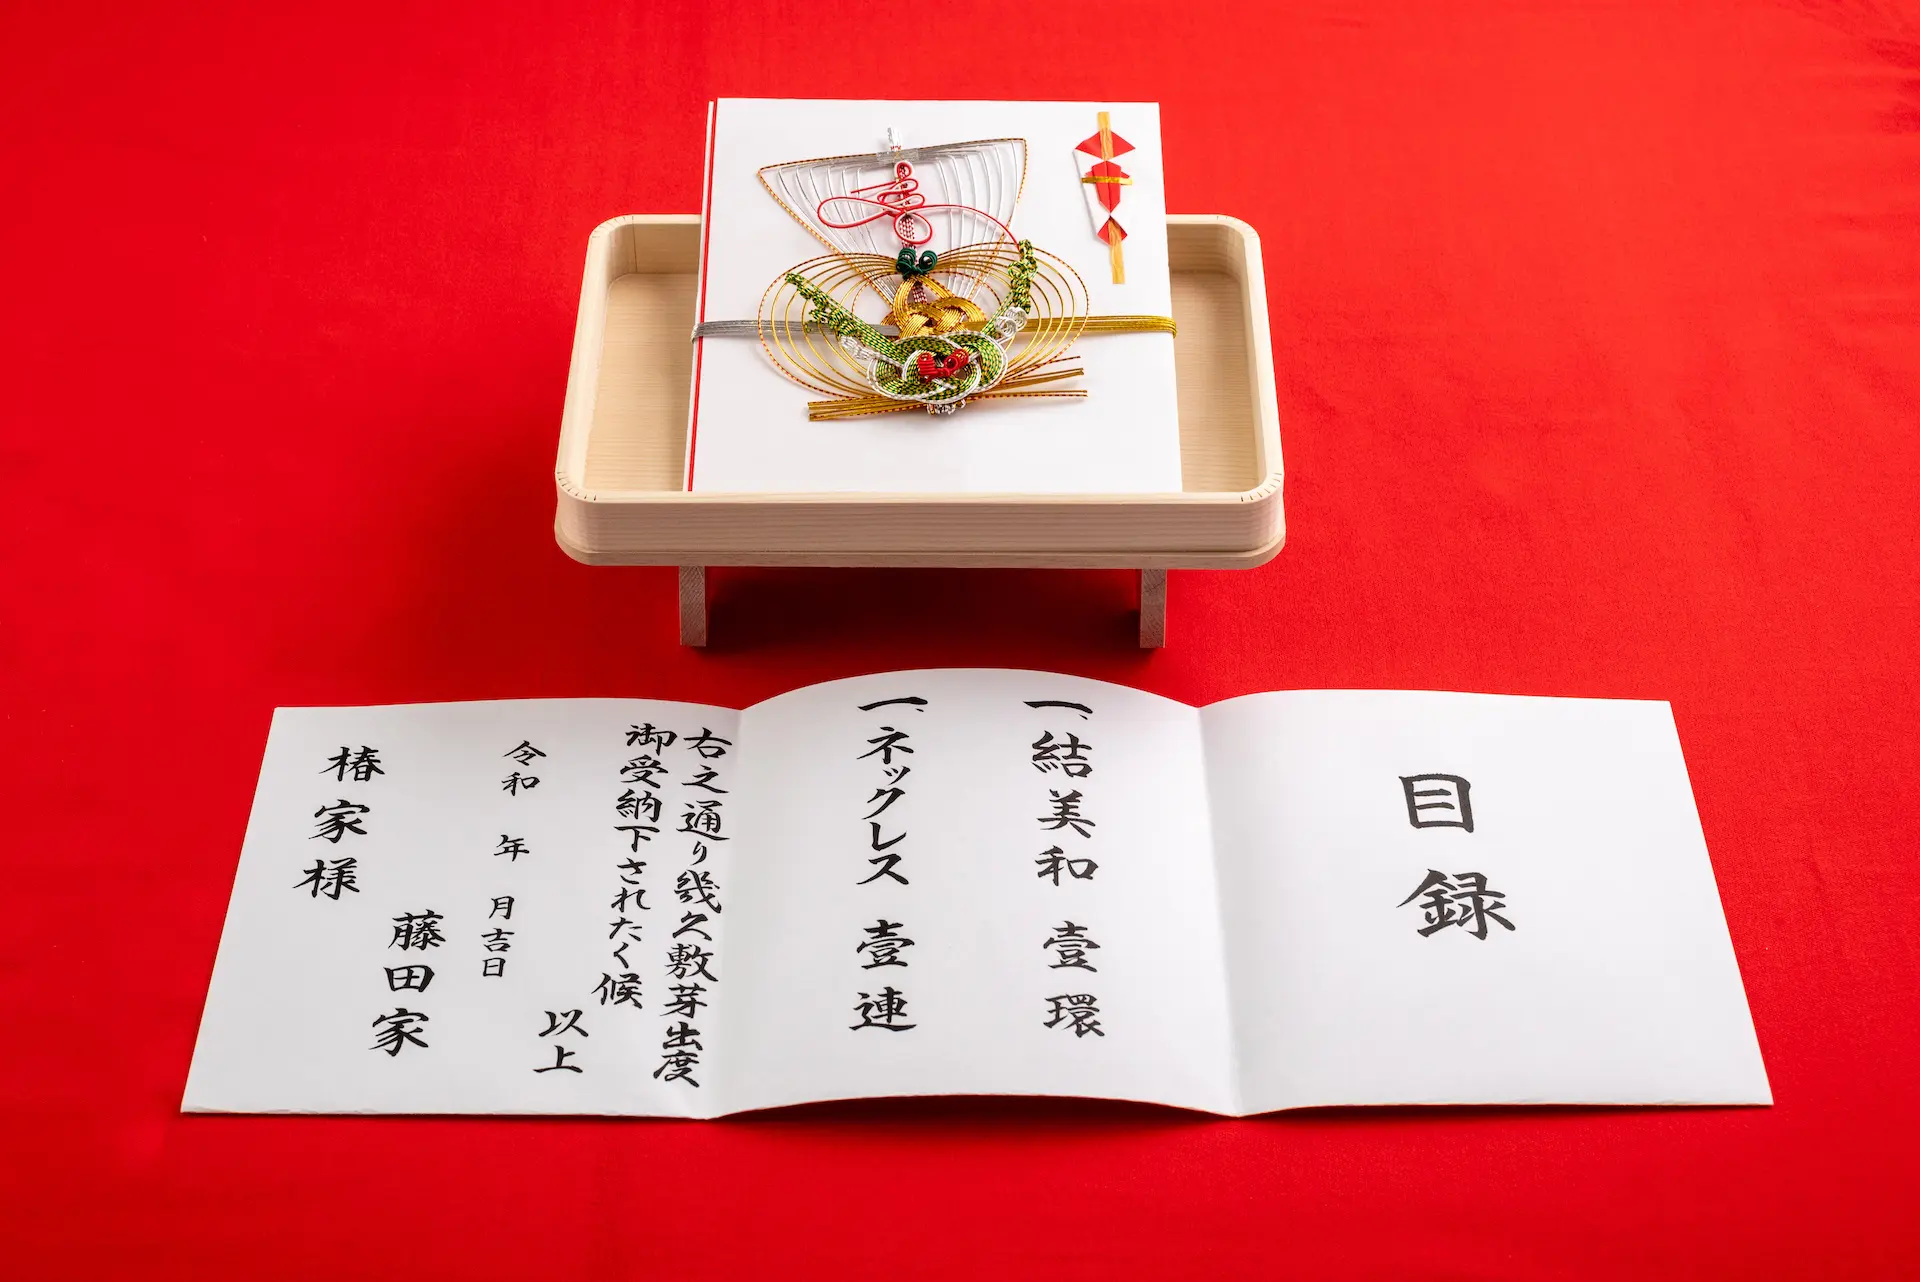 目録
一、結美和 壹環
一、ネックレス 壹連
右之通り幾久敷芽出度
御受納下されたく候
以上
令和 年 月吉日
藤田家
椿家様